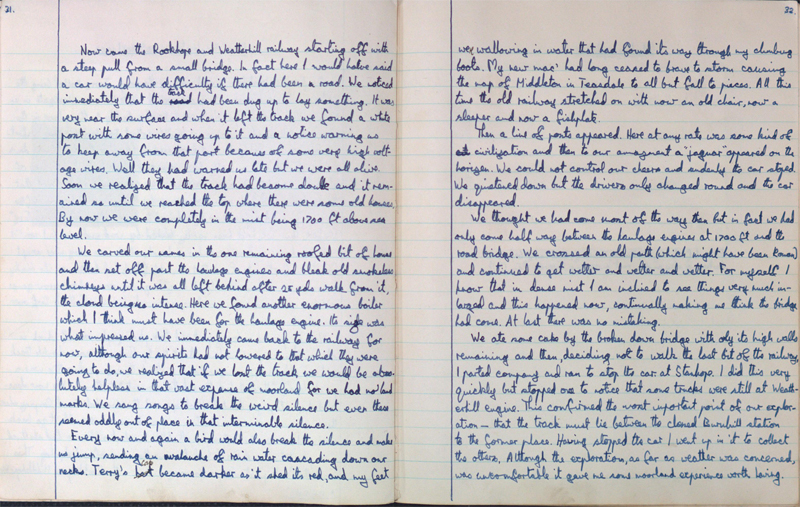 31.
Now came the Rookhope and Weatherhill railway starting off with
a steep pull from a small bridge. In fact here I would have said
a car would have difficulty if there had been a road. We noticed
imediately that the track had been dug up to lay something. It was
very near the surface and when it left the track we found a white
post with some wires going up to it and a notice warning us
to keep away from that part because of some very high volt-
age wires. Well they had warned us late but we were all alive.
Soon we realized that the track had become double and it rem-
ained so until we reached the top where there were some old houses.
By now we were completely in the mist being 1700 ft above sea
level.
We carved our names in the one remaining roofed bit of house
and then set off past the haulage engines and bleak old smokeless
chimneys until it was all left behind after 25 yds walk from it,
the cloud being so intense. Here we found another enormous boiler
which I think must have been for the haulage engine. Its size was
what impressed us. We immediately came back to the railway for
now, although our spirits had not lowered to that which they were
going to do, we realized that if we lost the track we would be abso-
lutely helpless in that vast expanse of moorland for we had no land
marks. We sang songs to break the weird silence but even these
seemed oddly out of place in that interminable silence.
Every now and again a bird would also break the silence and make
us jump, sending an avalanche of rain water cascading down our
necks. Terry's cap became darker as it shed its red, and my feet
32.
were wallowing in water that had found its way through my climbing
boots. My new mac' had long ceased to brave to storm causing
the map of Middleton in Teasdale to all but fall to pieces. All this
time the old railway stretched on with now an old chair, now a
sleeper and now a fishplate.
Then a line of posts appeared. Here at any rate was some kind of
civilization and then to our amazment a "jaguar" appeared on the
horizon. We could not control our cheers and sudenly the car stoped.
We quietened down but the drivers only changed round and the car
disappeared.
We thought we had come most of the way then but in fact we had
only come half way between the haulage engines at 1700 ft and the
road bridge. We crossed an old path (which might have been Roman)
and continued to get wetter and wetter and wetter. For myself I
know that in dense mist I am inclined to see things very much in-
larged and this happened now, continually making me think the bridge
had come. At last there was no mistaking.
We ate some cake by the broken down bridge with only its high walls
remaining and then, deciding not to walk the last bit of the railway,
I parted company and ran to stop the car at Stanhope. I did this very
quickly but stopped once to notice that some trucks were still at Weath-
erhill engine. This confirmed the most important point of our explor-
ation – that the track must lie between the closed Burnhill station
to the former place. Having stopped the car I went up in it to collect
the others. Although the exploration, as far as weather was concerned,
was uncomfortable it gave me some moorland experience worth having.